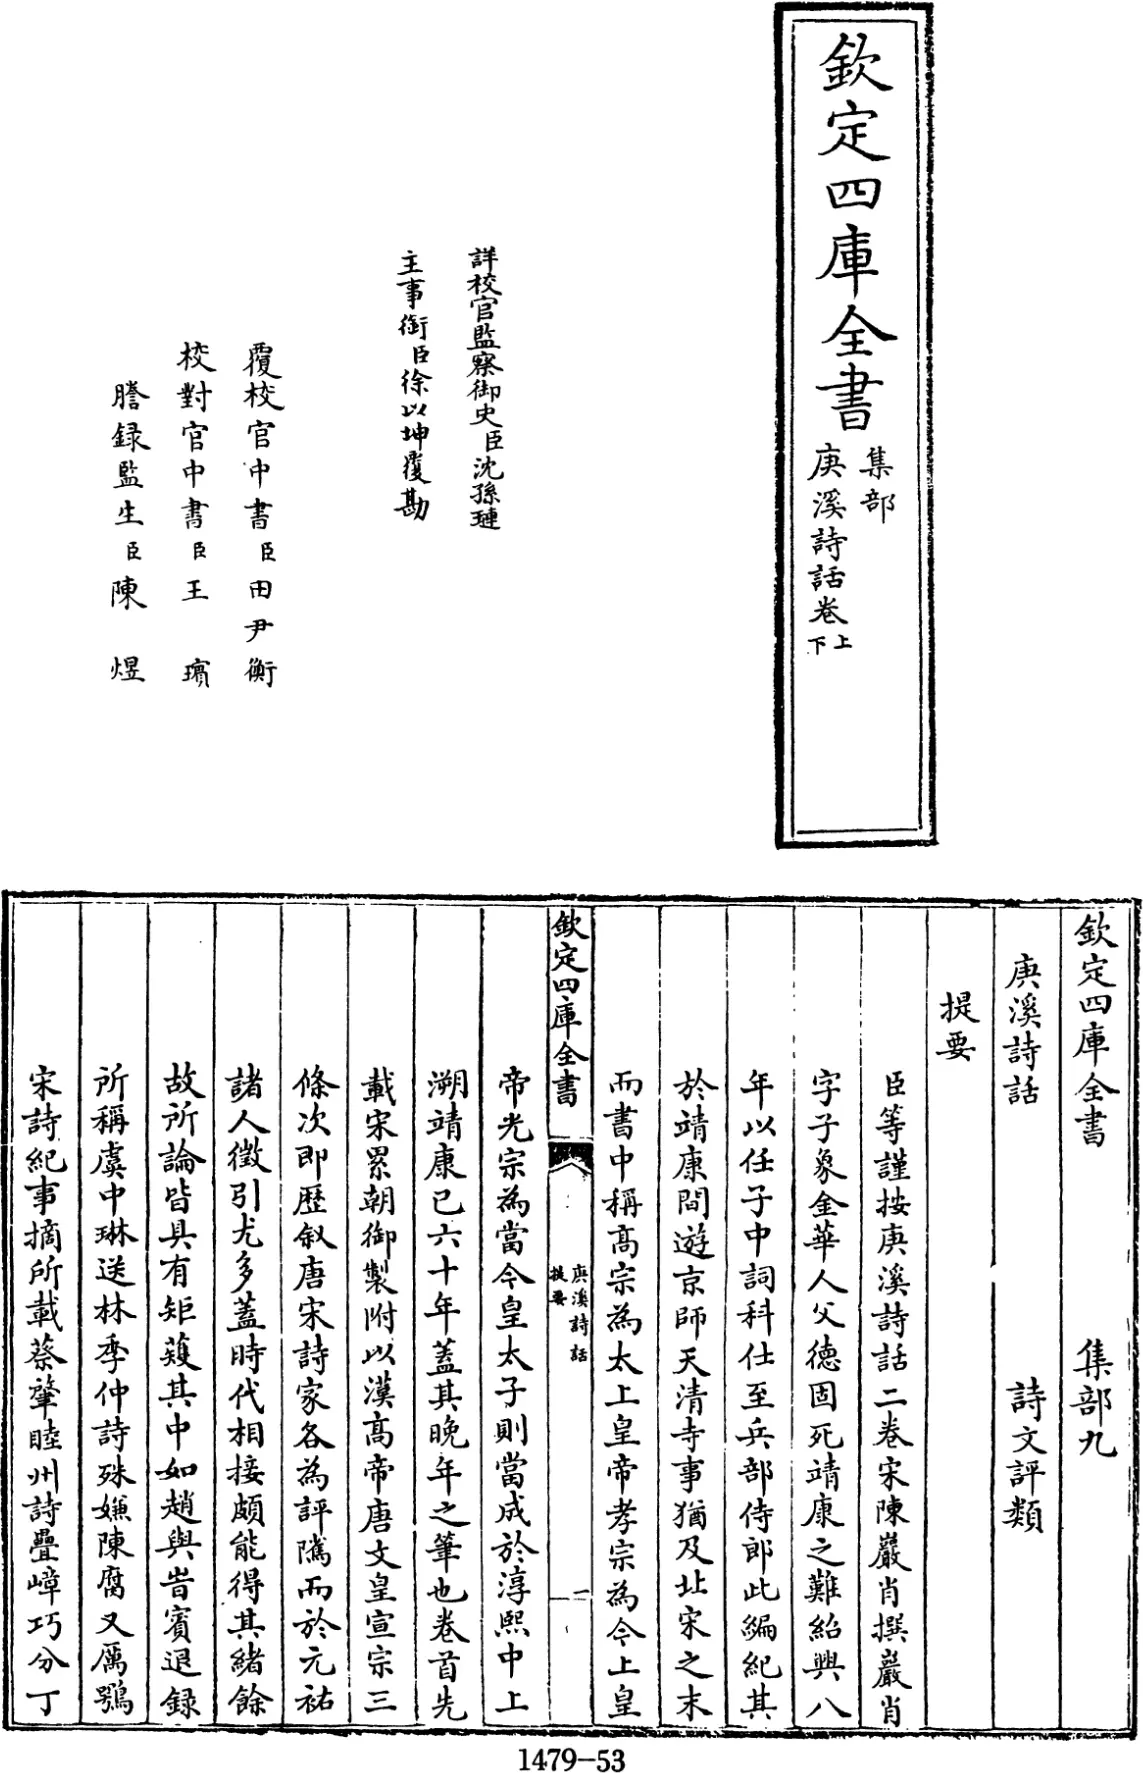 欽定四庫全書
集部
庚溪詩話卷上下
詳校官監察御史臣沈孫璉
主事銜臣徐以坤覆勘
覆校官中書臣田尹衡
校對官中書臣王璸
謄録監生臣陳煜
欽定四庫全書 集部九
庚溪詩話 詩文評類
提要
臣等謹按庚溪詩話二卷宋陳巖肖撰巖肖
字子象金華人父德固死靖康之難紹興八
年以任子中詞科仕至兵部侍郎此編紀其
於靖康間遊京師天清寺事猶及北宋之末
而書中稱髙宗為太上皇帝孝宗為今上皇
帝光宗為當今皇太子則當成於淳熙中上
溯靖康已六十年蓋其晩年之筆也卷首先
載宋累朝御製附以漢髙帝唐文皇宣宗三
條次即歴叙唐宋詩家各為評隲而於元祐
諸人徵引尤多蓋時代相接頗能得其緒餘
故所論皆具有矩矱其中如趙與旹賓退録
所稱虞中琳送林季仲詩殊嫌陳腐又厲鶚
宋詩紀事摘所載蔡肇睦州詩疊嶂巧分丁
欽定四庫全書
庚溪詩話
提要
一
1479-53